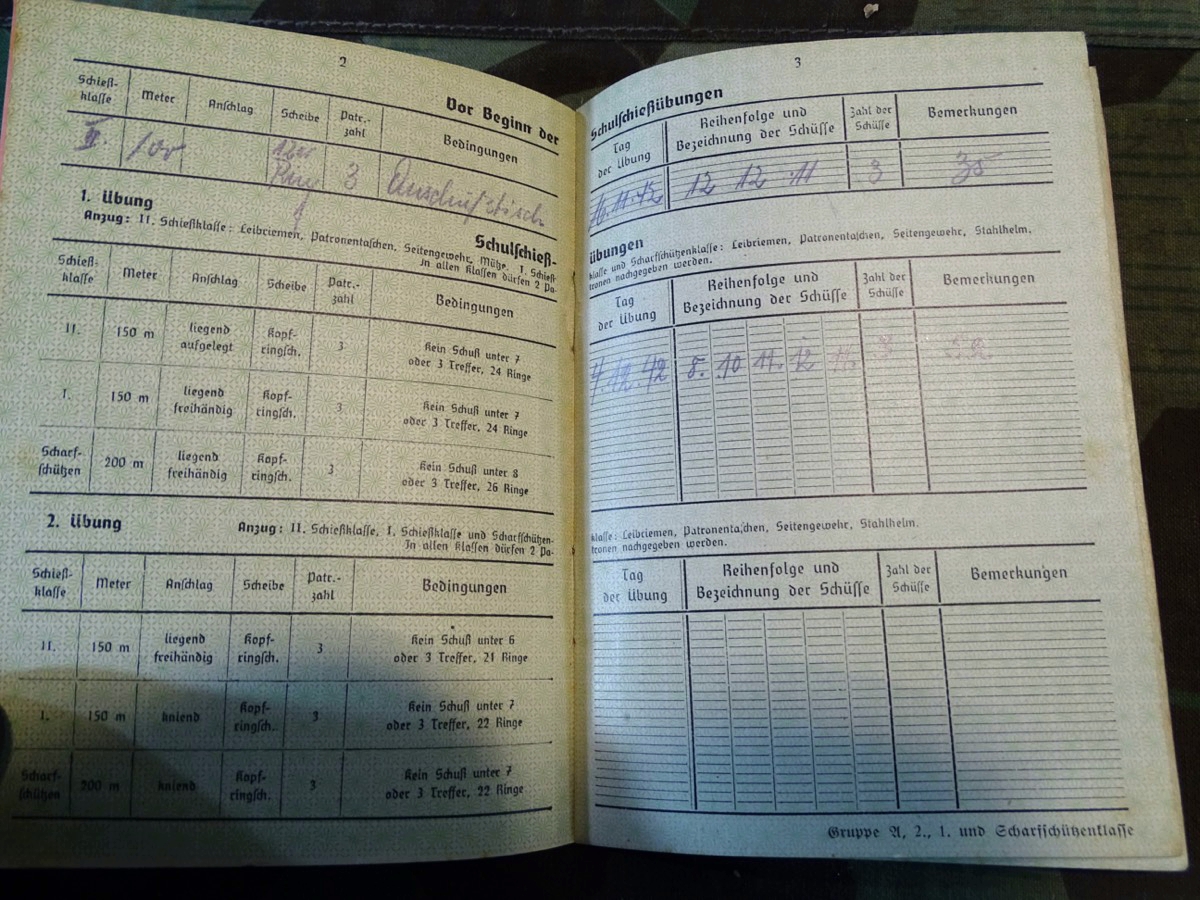 2
Vor Beginn der
Schieß-klasse Meter Anschlag Scheibe Patr.-zahl Bedingungen
II. 100 12er Ring 3 Anschußtisch
1. Übung
Schulschieß-
Anzug: II. Schießklasse: Leibriemen, Patronentaschen, Seitengewehr, Mütze. I. Schieß-
In allen Klassen dürfen 2 Pa-
Schieß-klasse Meter Anschlag Scheibe Patr.-zahl Bedingungen
II. 150 m liegend aufgelegt Kopf-ringsch. 3 Kein Schuß unter 7 oder 3 Treffer, 24 Ringe
I. 150 m liegend freihändig Kopf-ringsch. 3 Kein Schuß unter 7 oder 3 Treffer, 24 Ringe
Scharf-schützen 200 m liegend freihändig Kopf-ringsch. 3 Kein Schuß unter 8 oder 3 Treffer, 26 Ringe
2. Übung
Anzug: II. Schießklasse, I. Schießklasse und Scharfschützen-
In allen Klassen dürfen 2 Pa-
Schieß-klasse Meter Anschlag Scheibe Patr.-zahl Bedingungen
II. 150 m liegend freihändig Kopf-ringsch. 3 Kein Schuß unter 6 oder 3 Treffer, 21 Ringe
I. 150 m kniend Kopf-ringsch. 3 Kein Schuß unter 7 oder 3 Treffer, 22 Ringe
Scharf-schützen 200 m kniend Kopf-ringsch. 3 Kein Schuß unter 7 oder 3 Treffer, 22 Ringe
3
Schulschießübungen
Tag der Übung Reihenfolge und Bezeichnung der Schüsse Zahl der Schüsse Bemerkungen
16.11.42 12 12 11 3 35
übungen
klasse und Scharfschützenklasse: Leibriemen, Patronentaschen, Seitengewehr, Stahlhelm.
tronen nachgegeben werden.
Tag der Übung Reihenfolge und Bezeichnung der Schüsse Zahl der Schüsse Bemerkungen
4.12.42 8. 10 11. 12 11.
klasse: Leibriemen, Patronentaschen, Seitengewehr, Stahlhelm.
tronen nachgegeben werden.
Tag der Übung Reihenfolge und Bezeichnung der Schüsse Zahl der Schüsse Bemerkungen
Gruppe A, 2., 1. und Scharfschützenklasse